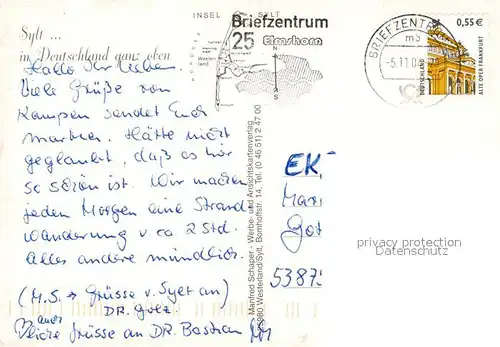 INSEL SYLT
Sylt ...
in Deutschland ganz oben
Briefzentrum
25
Elmshorn
Wester-
land
N
S
BRIEFZENTR
mb
-5.11.0
0,55 €
DEUTSCHLAND
ALTE OPER FRANKFURT
Hallo Ihr Lieben.
Viele Grüße von
Kampen sendet Euch
Hätte nicht
geglaubt, daß es hier
so schön ist. Wir machen
jeden Morgen eine Strand
wanderung v ca 2 Std.
Alles andere mündlich.
(M.S. → Grüsse v. Sylt an)
DR. Golz
auch
liebe Grüsse an DR. Bastian
Manfred Schaper - Werbe- und Ansichtskartenverlag
25980 Westerland/Sylt, Bomhoffstr. 14, Tel. (0 46 51) 2 47 00
EK,
Mar
Got
5387
privacy protection
Datenschutz